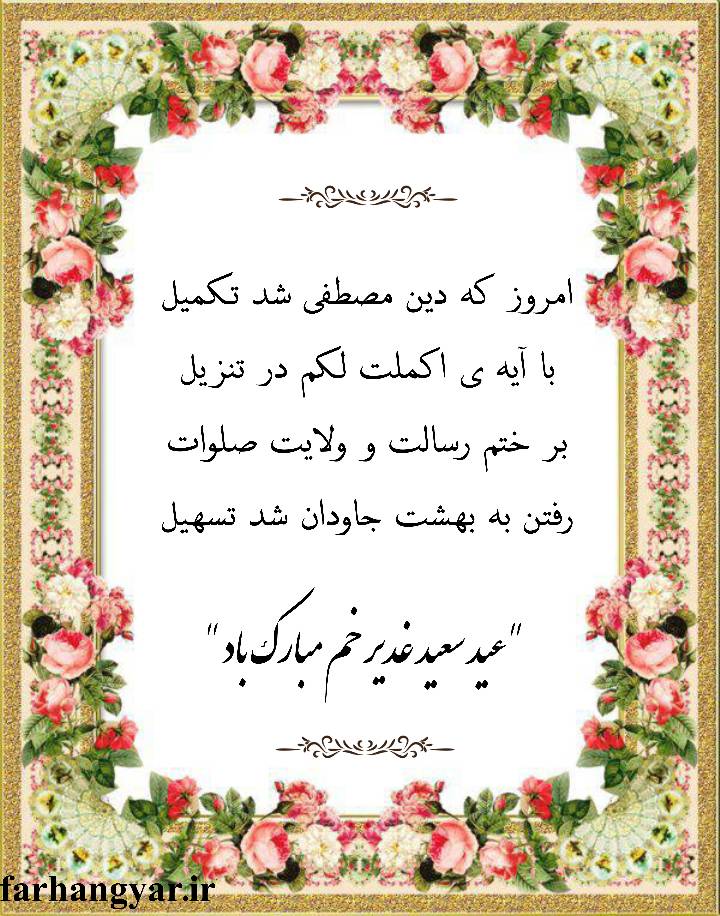 امروز که دین مصطفی شد تکمیل
با آیه ی اکملت لکم در تنزیل
بر ختم رسالت و ولایت صلوات
رفتن به بهشت جاودان شد تسهیل
"عید سعید غدیر خم مبارک باد"
farhangyar.ir